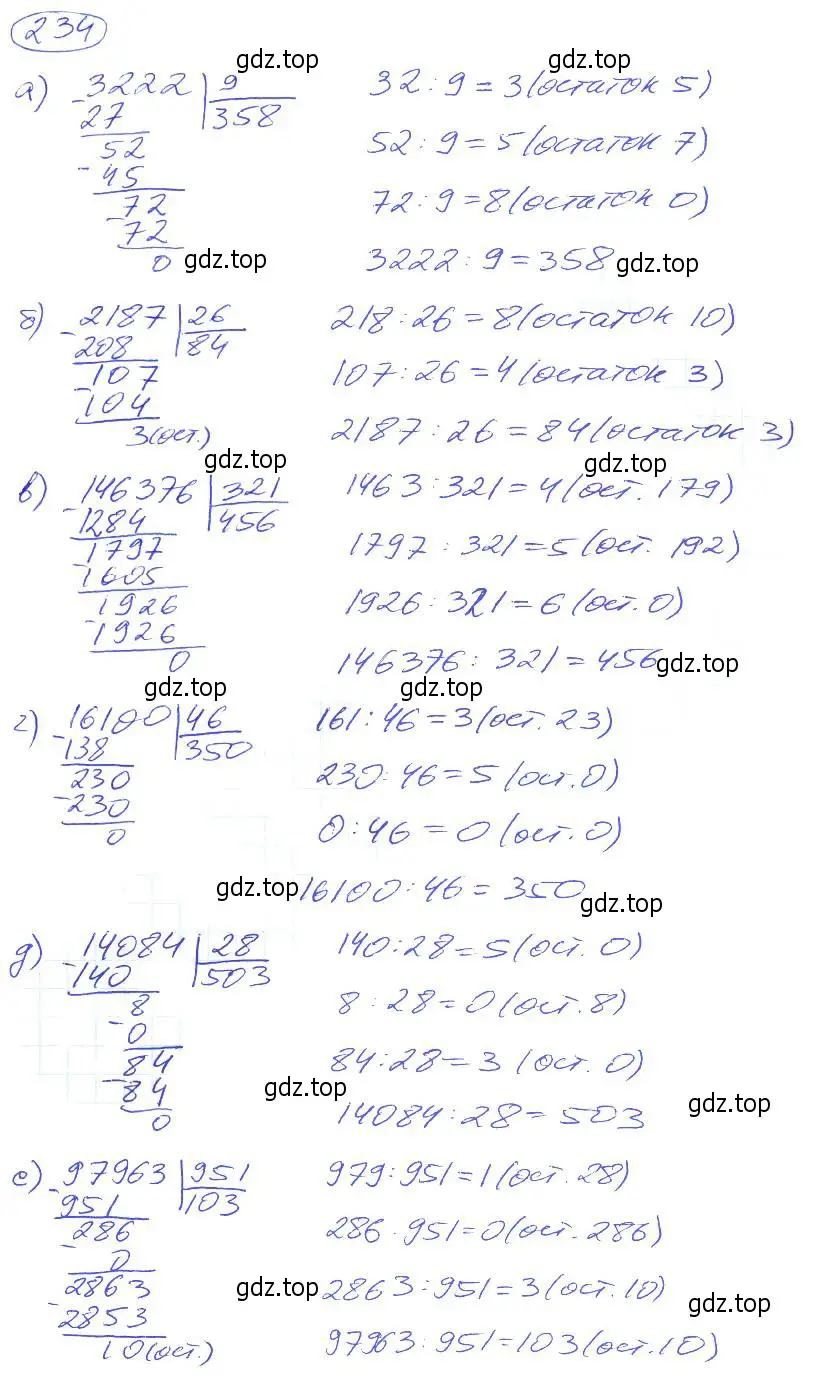 234
gdz.top gdz.top
а) 3222 | 9 32 : 9 = 3 (остаток 5)
- 27 | 358
52 52 : 9 = 5 (остаток 7)
- 45
72 72 : 9 = 8 (остаток 0)
- 72
0 gdz.top 3222 : 9 = 358 gdz.top
б) 2187 | 26 218 : 26 = 8 (остаток 10)
- 208 | 84
107 107 : 26 = 4 (остаток 3)
- 104
3 (ост.) 2187 : 26 = 84 (остаток 3)
gdz.top gdz.top
в) 146376 | 321 1463 : 321 = 4 (ост. 179)
- 1284 | 456
1797 1797 : 321 = 5 (ост. 192)
- 1605
1926 1926 : 321 = 6 (ост. 0)
- 1926
0 146376 : 321 = 456 gdz.top
gdz.top gdz.top
г) 16100 | 46 161 : 46 = 3 (ост. 23)
- 138 | 350
230 230 : 46 = 5 (ост. 0)
- 230
0 0 : 46 = 0 (ост. 0)
gdz.top 16100 : 46 = 350 gdz.top
д) 14084 | 28 140 : 28 = 5 (ост. 0)
- 140 | 503
8 8 : 28 = 0 (ост. 8)
- 0
84 84 : 28 = 3 (ост. 0)
- 84 gdz.top gdz.top
0 14084 : 28 = 503
е) 97963 | 951 979 : 951 = 1 (ост. 28)
- 951 | 103
286 286 : 951 = 0 (ост. 286)
- 0
2863 gdz.top 2863 : 951 = 3 (ост. 10) gdz.top
- 2853
10 (ост.) 97963 : 951 = 103 (ост. 10)